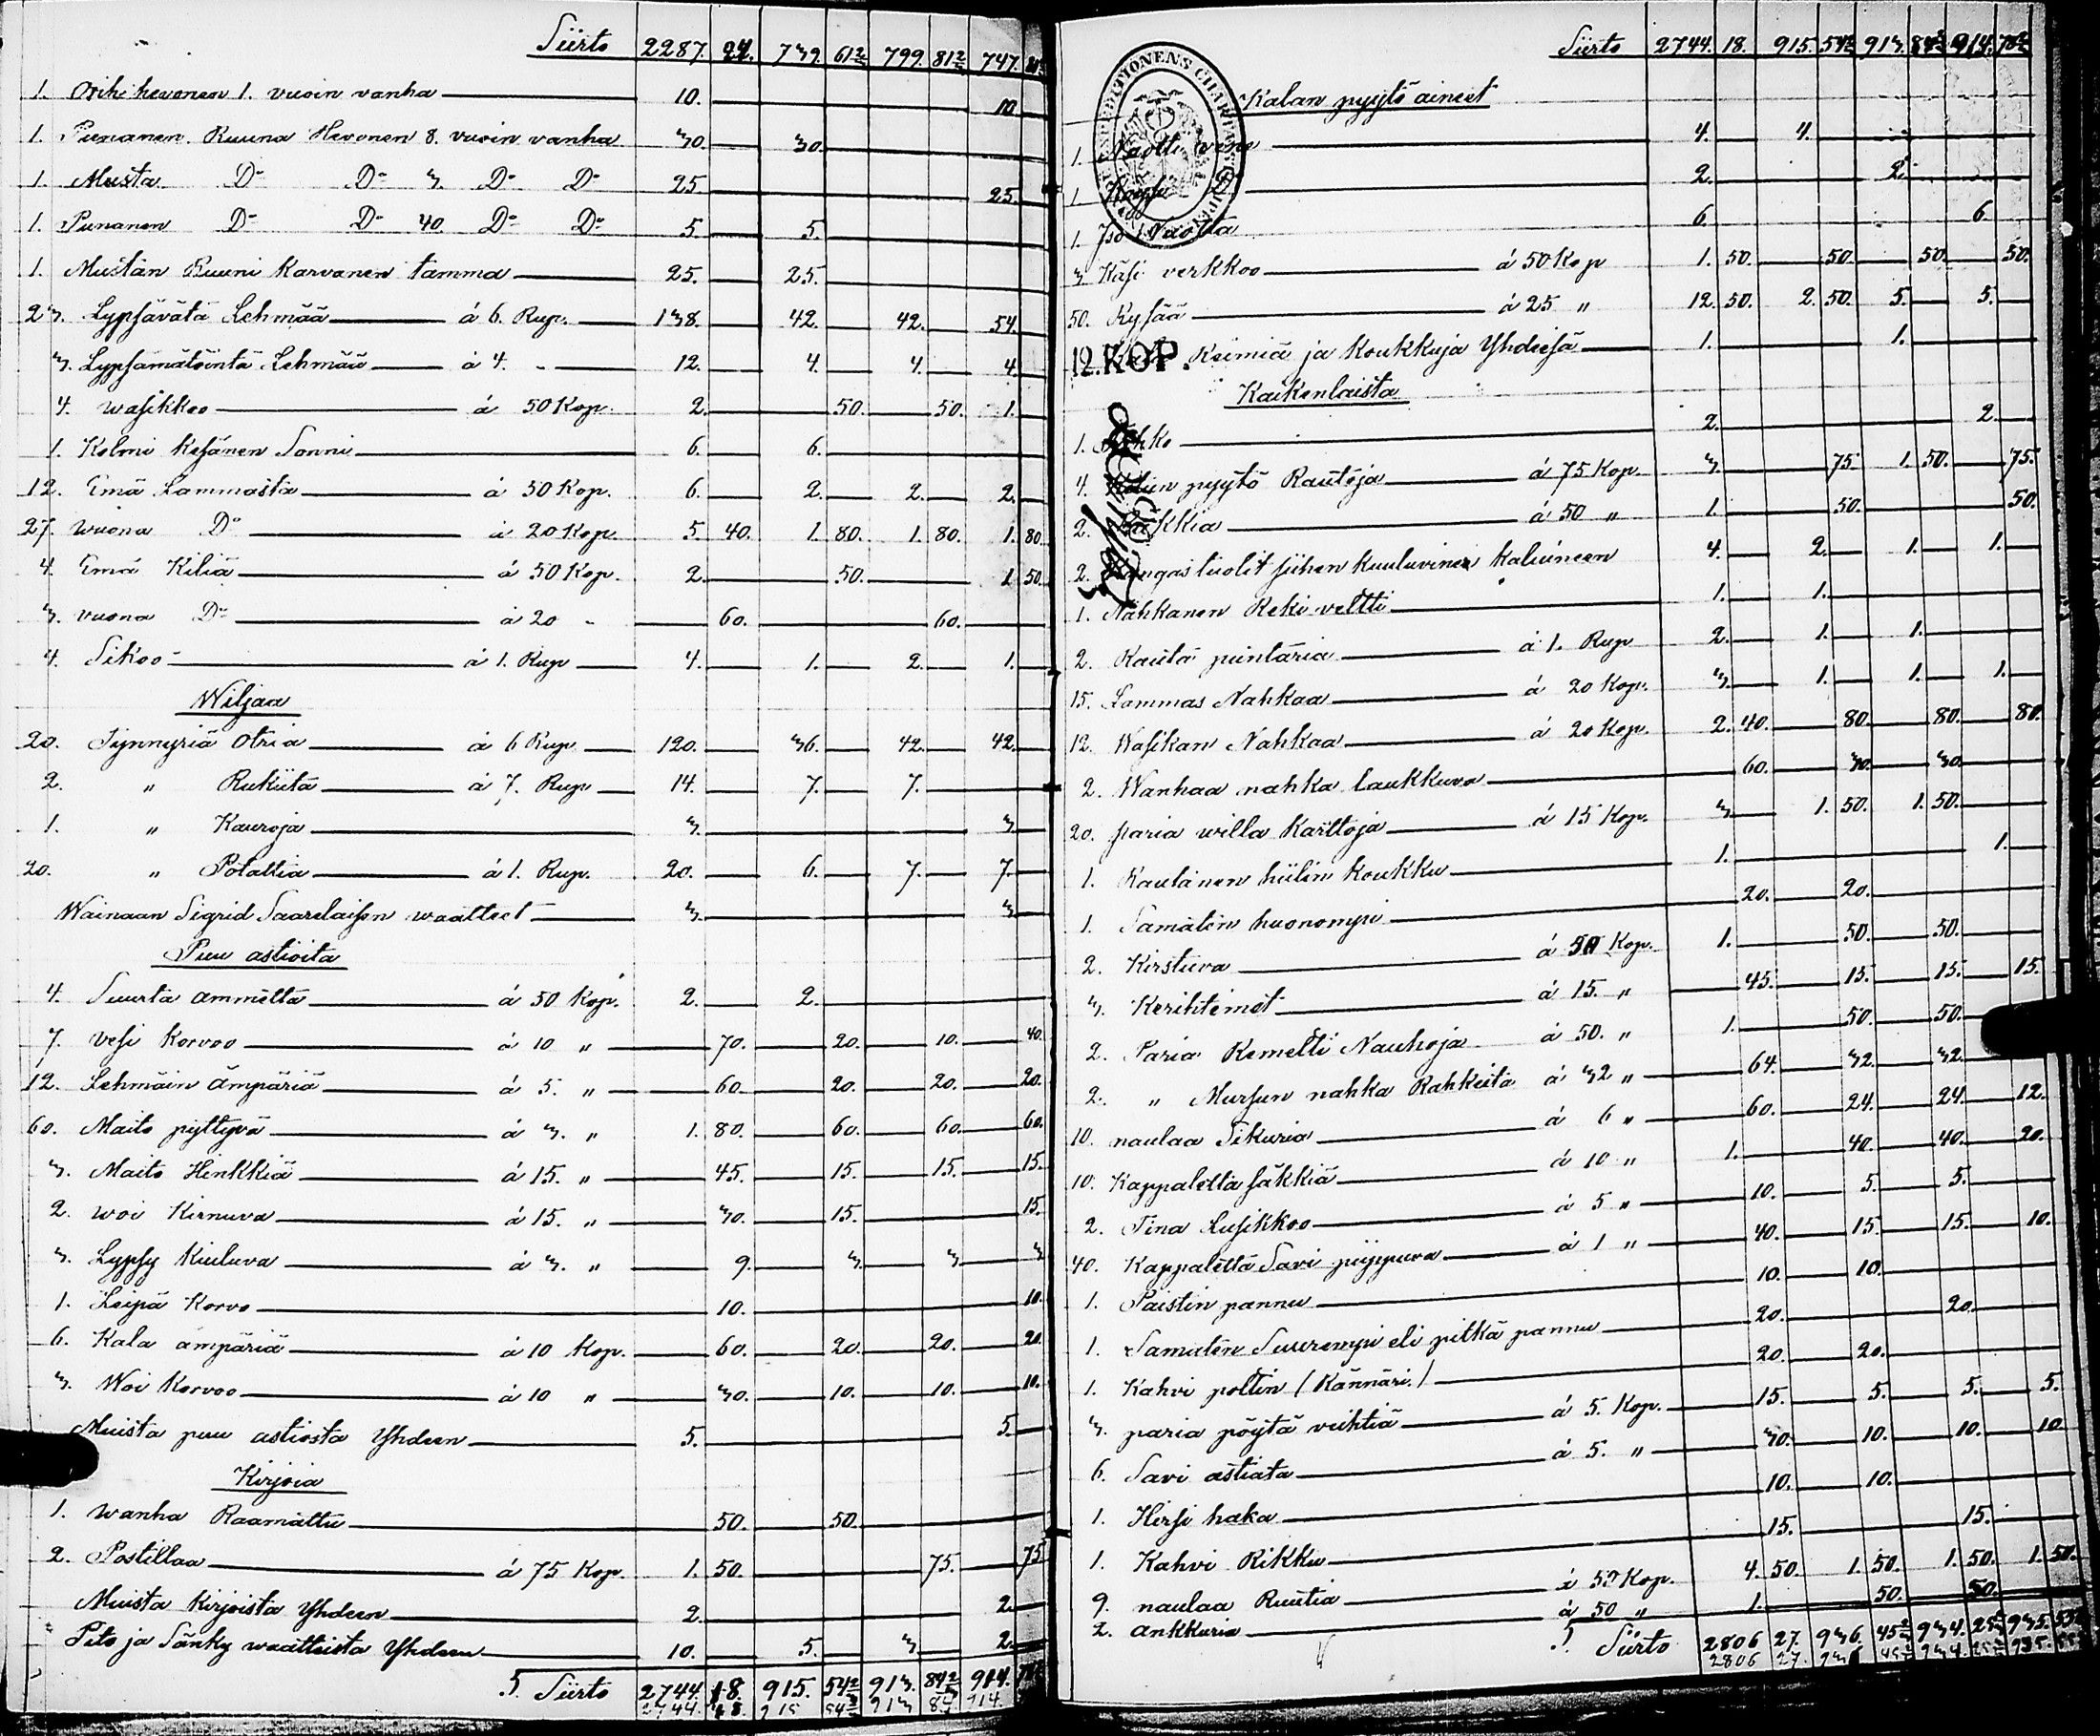 Siirto 2287. 24. 739. 61 2/3 799. 81 2/3 747.
1. Orih hevonen 1. vuoin vanha 10. 10
1. Punanen Ruuna Hevonen 8. vuoin vanha 30. 30.
1. Musta Do Do 3. Do Do 25. 25.
1. Punanen Do Do 40. Do Do 5. 5.
1. Mustan Ruuni Karvanen tamma 25. 25.
23. Lypsävätä Lehmää á 6. Rup. 138. 42. 42. 54.
3. Lypsämätöintä Lehmää á 4. " 12. 4. 4. 4.
4. wasikkoo á 50 Kop. 2. 50. 50. 1.
1. Kolmi Kesänen Sonni 6. 6.
12. Emä Lammasta á 50 Kop. 6. 2. 2. 2.
27. wuona Do á 20 Kop. 5. 40. 1. 80. 1. 80. 1. 80.
4. Emä Kiliä á 50 Kop. 2. 50. 1 50.
3. vuona Do á 20 " 60. 60.
4. Sikoo á 1. Rup 4. 1. 2. 1.
Wiljaa
20. Tynnyriä Otria á 6 Rup. 120. 36. 42. 42.
2. " Rukiita á 7. Rup 14. 7. 7.
1. " Kauroja 3. 3
20. " Potattia á 1. Rup. 20. 6. 7. 7.
Wainaan Sigrid Saarelaisen waatteet 3. 3
Puu astioita
4. Suurta ammetta á 50 Kop. 2. 2.
7. vesi Korvoo á 10 " 70. 20. 10. 40.
12. Lehmäin Ämpäriä á 5. " 60. 20. 20. 20.
60. Maito pyttyvä á 3. " 1. 80. 60. 60. 60.
3. Maito Hinkkiä á 15. " 45. 15. 15. 15.
2. woi Kirnuva á 15. " 30. 15. 15.
3. Lypsy Kiuluva á 3. " 9. 3. 3 3
1. Leipä Korvo 10. 10.
6. Kala ämpäriä á 10 Kop. 60. 20. 20. 20.
3. Woi Korvoo á 10 " 30. 10. 10. 10.
Muista puu astiosta Yhdeen 5. 5.
Kirjoia
1. wanha Raamattu 50. 50.
2. Postillaa á 75 Kop. 1. 50. 75. 75
Muista Kirjoista Yhdeen 2. 2.
Pito ja Sänky waatteista Yhdeen 10. 5. 3 2.
S. Siirto 2744. 18. 915. 54 2/3 913. 84 2/3 914.
2744. 18. 915 54 2/3 913 914
Siirto 2744. 18. 915. 54 2/3 913. 84 2/3 914. 78 2/3
Kalan pyytö aineet
1. Nuotti vene 4. 4.
1. 2. 2.
1. Iso Nuotta 6. 6
3 Käsi verkkoo á 50 Kop 1. 50. 50. 50. 50.
50. Rysää á 25 " 12. 50. 2. 50. 5. 5.
12. KOP. Reimiä ja Koukkuja Yhdeesä 1. 1.
Kaikenlaista
1. 2. 2.
4. pyytö Rautoja á 75 Kop. 3 75. 1. 50. 75.
2. á 50 " 1. 50. 50.
2. Kangas tuolit siihen Kuuluvinen Kaluineen 4. 2. 1. 1.
1. Nahkanen Reki veltti 1. 1.
2. Rauta puntaria á 1. Rup 2. 1. 1.
15. Lammas Nahkaa á 20 Kop. 3. 1. 1. 1.
12. Wasikan Nahkaa á 20 Kop. 2. 40. 80. 80. 80.
2. Wanhaa nahka laukkuva 60. 30. 30.
20. paria willa Karttoja á 15 Kop. 3 1. 50. 1. 50.
1. Rautanen hiilin Koukku 1. 1.
1. Samaten huonompi 20. 20.
2. Kirstuva á 50 Kop. 1. 50. 50.
3. Kerihtemet á 15. " 45. 15. 15. 15.
2. Paria Remelti Nauhoja á 50. " 1. 50. 50.
2. " Mursun nahka Rahkeita á 32 " 64. 32. 32.
10. naulaa Sikuria á 6 " 60. 24. 24. 12.
10. Kappaletta säkkiä á 10 " 1. 40. 40. 20.
2. Tina Lusikkoo á 5 " 10. 5. 5.
40. Kappaletta Savi piippuva á 1 " 40. 15. 15. 10.
1. Paistin pannu 10. 10.
1. Samaten Suurempi eli pitkä pannu 20. 20.
1. Kahvi poltin (Kännäri.) 20. 20.
3. paria pöytä veihtiä á 5. Kop. 15. 5. 5. 5.
6. Savi astiata á 5. " 30. 10. 10. 10.
1. Hirsi haka 10. 10.
1. Kahvi Rikku 15. 15.
9. naulaa Ruutia á 50 Kop. 4. 50. 1. 50. 1. 50. 1. 50.
2. ankkuria á 50 " 1. 50. 50.
S. Siirto 2806 27. 936. 45 2/3 934. 25 2/3 935.
2806 27. 936 45 2/3 934. 25 2/3 935.